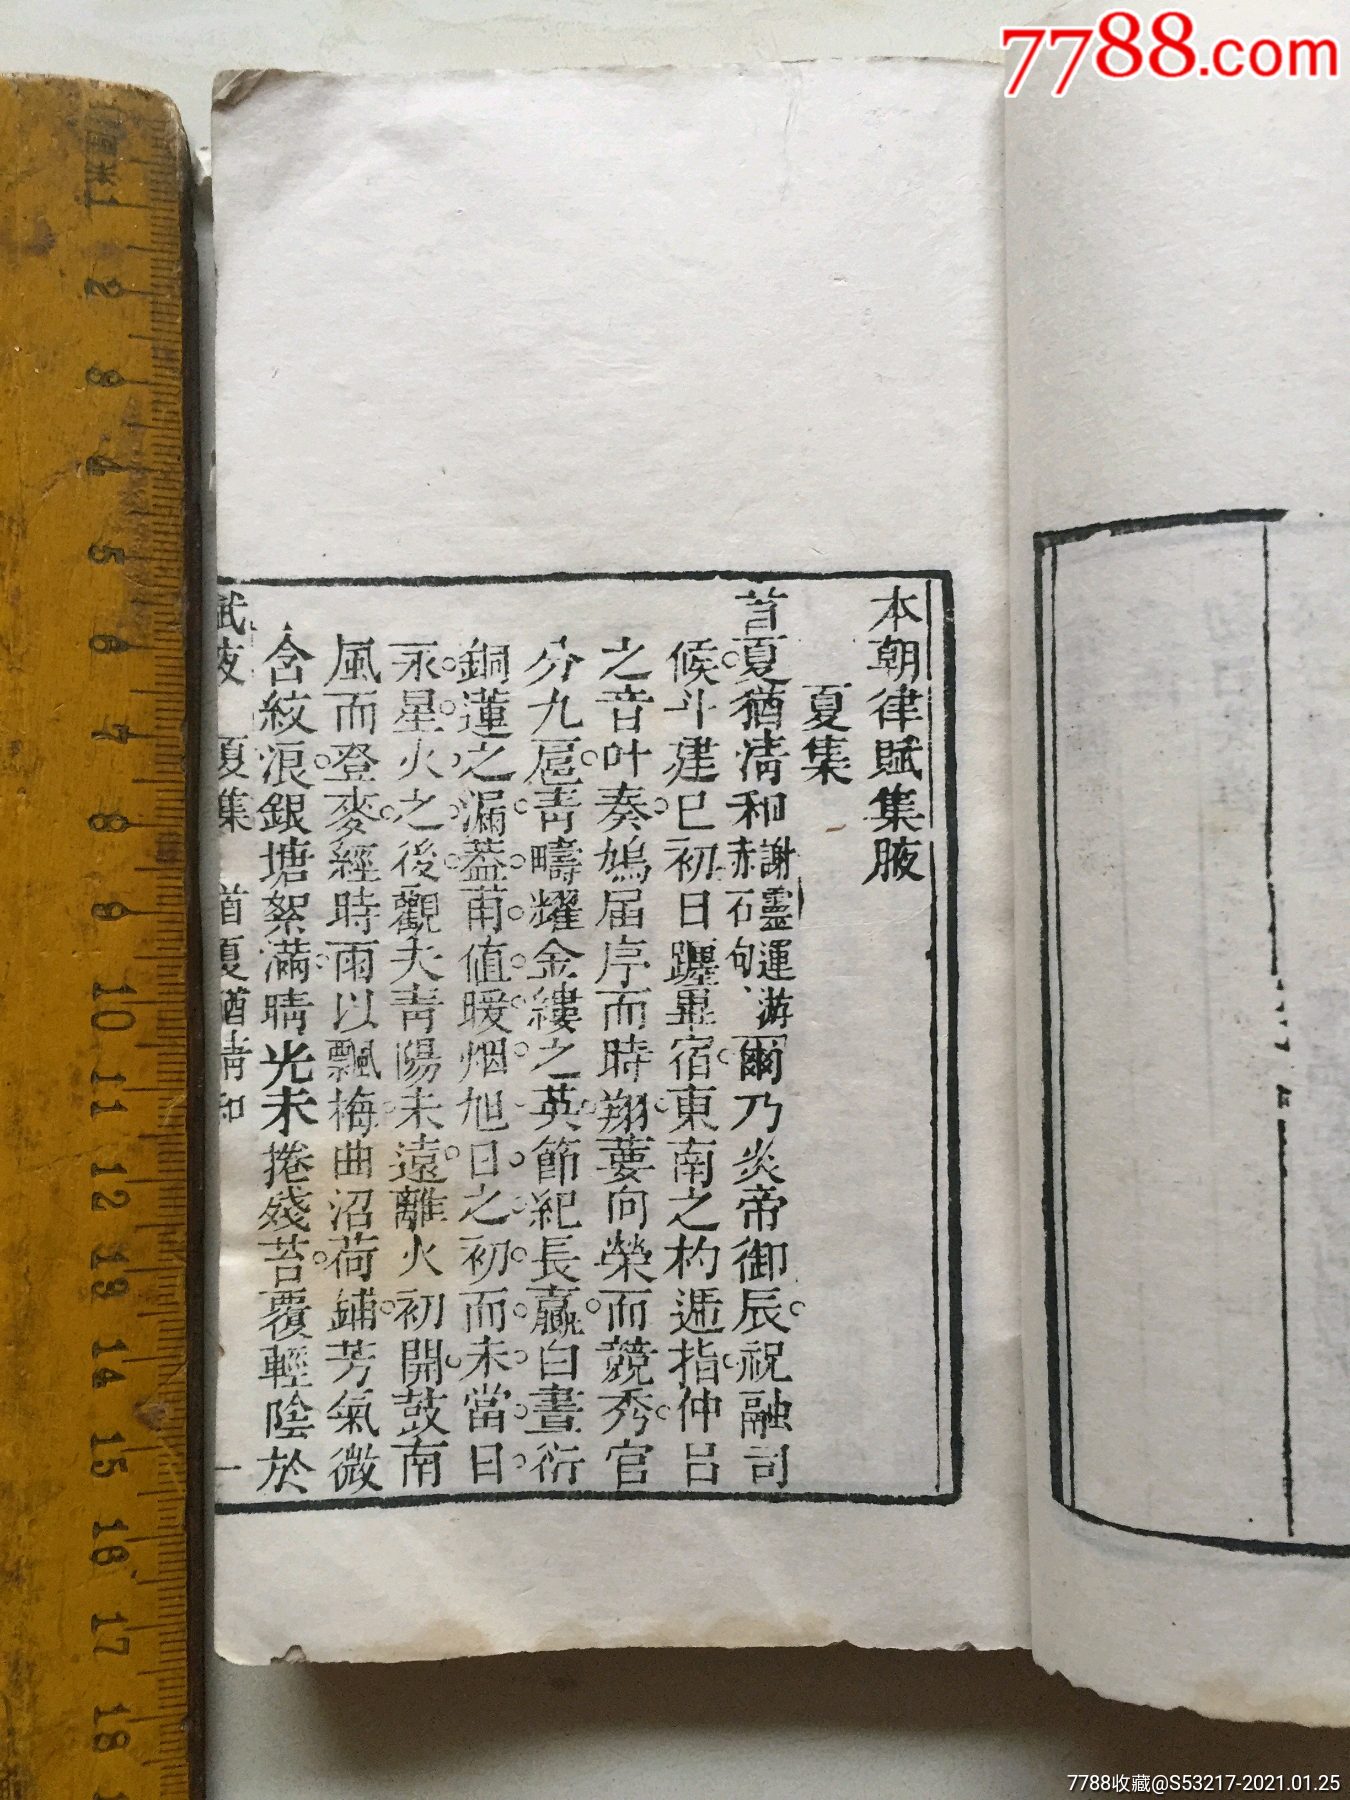 7788.com
本朝律賦集腋
夏集
首夏猶清和謝靈運游赤石句爾乃炎帝御辰祝融司
候斗建巳初日躔畢宿東南之杓遞指仲呂
之音叶奏鳩届序而時翔葽向榮而競秀官
分九扈青疇耀金縷之英節紀長贏白晝衍
銅蓮之漏葢莆值暖烟旭日之初而未當日
永星火之後觀夫青陽未遠離火初開鼓南
風而登麥經時雨以飄梅曲沼荷鋪芳氣微
含紋浪銀塘絮滿晴光未捲殘苔覆輕陰於
賦腋 夏集 首夏猶清和 一
厘米 1 2 3 4 5 6 7 8 9 10 11 12 13 14 15 16 17 18
7788收藏@S53217-2021.01.25